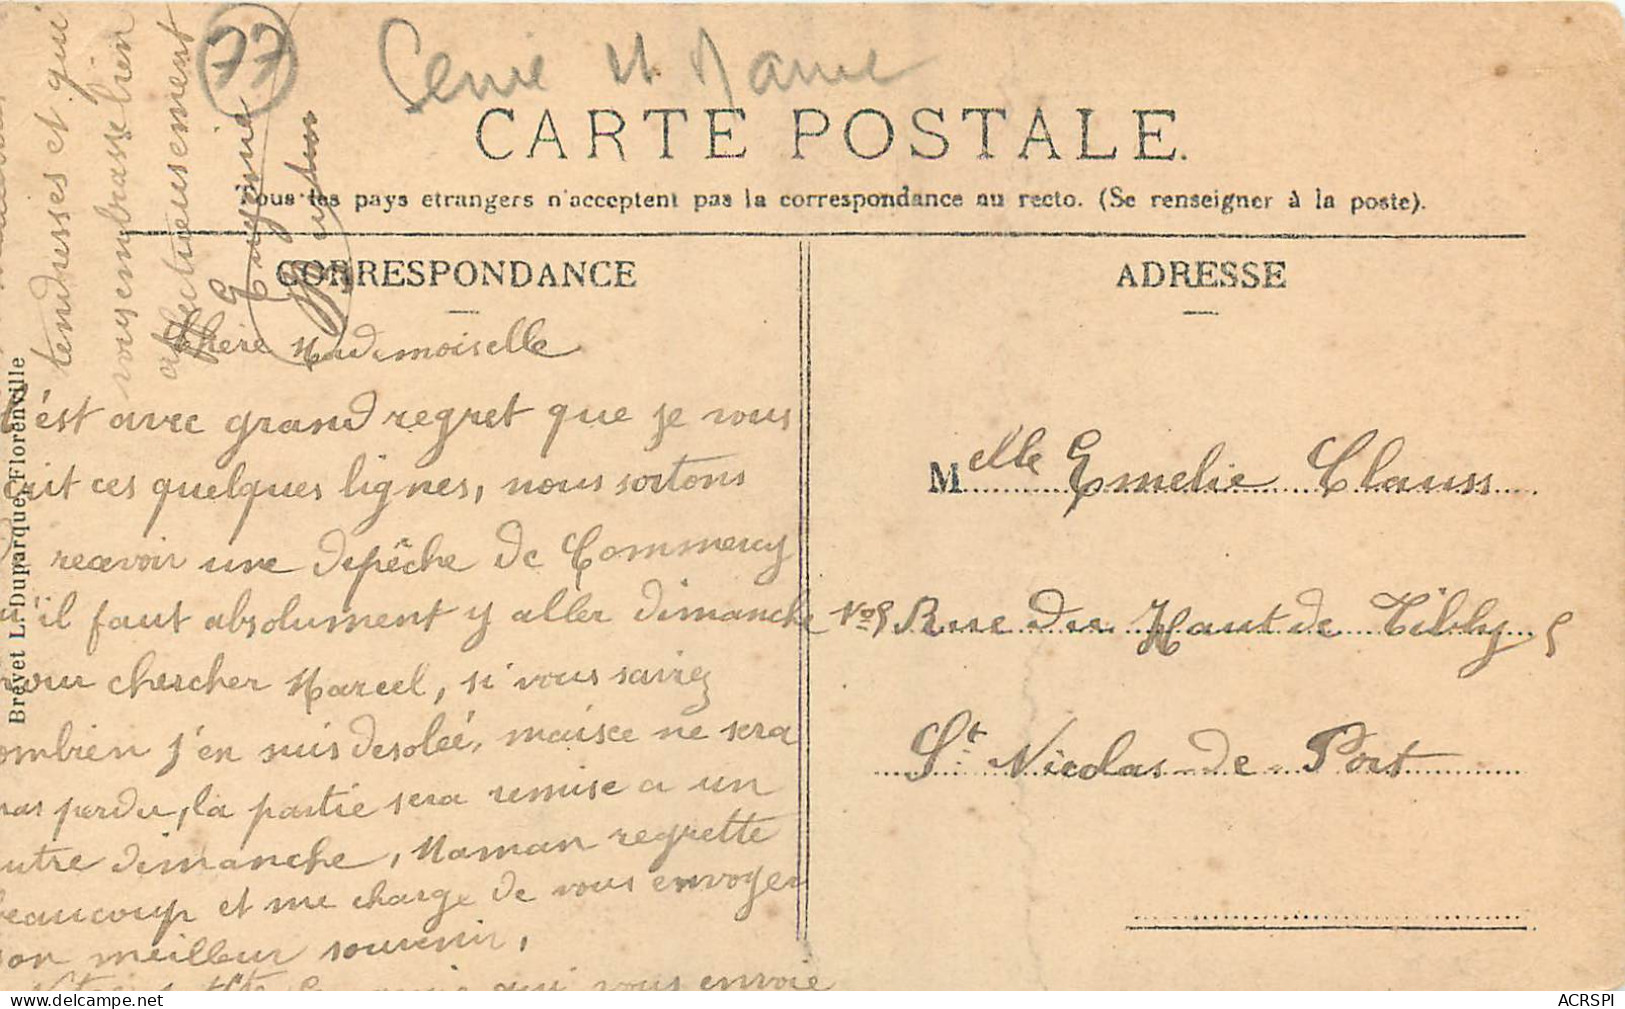 77
CARTE POSTALE.
Tous les pays etrangers n'acceptent pas la correspondance au recto. (Se renseigner à la poste).
CORRESPONDANCE
ADRESSE
Chère Mademoiselle
C'est avec grand regret que je vous
ecrit ces quelques lignes, nous sortons
recevoir une depêche de Commercy
qu'il faut absolument y aller dimanche
pour chercher Marcel, si vous saviez
combien j'en suis desoleé, mais ce ne sera
pas perdu, la partie sera remise a un
autre dimanche, Maman regrette
beaucoup et me charge de vous envoyer
son meilleur souvenir,
Votre petite qui vous envoie
tendresses et qui
vous embrasse bien
affectueusement
Eugénie
Melle Emelie Clauss
No 5 Rue du Haut de Tibly 5
St Nicolas-de-Port
Brevet L. Duparque, Florenville
ACRSPI